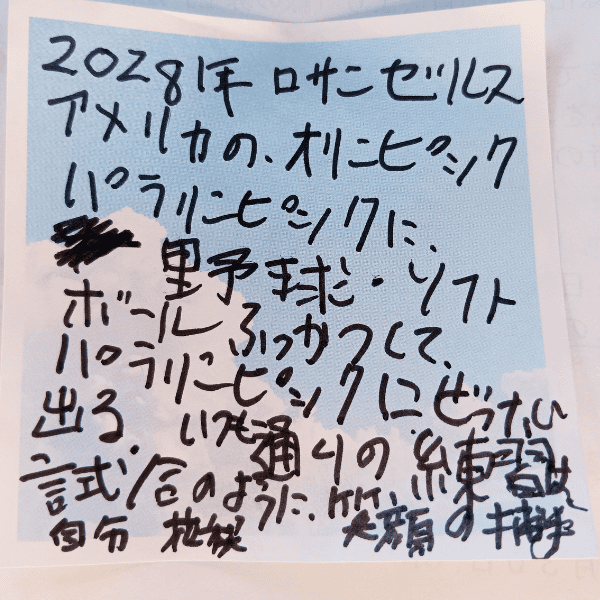 2028年 ロサンゼルス
アメリカの、オリンピック
パラリンピックに、
野球・ソフト
ボールふっかつして、
パラリンピックにぜったい
出る いつも通りの練習は
試合のように、
自分 笑顔の